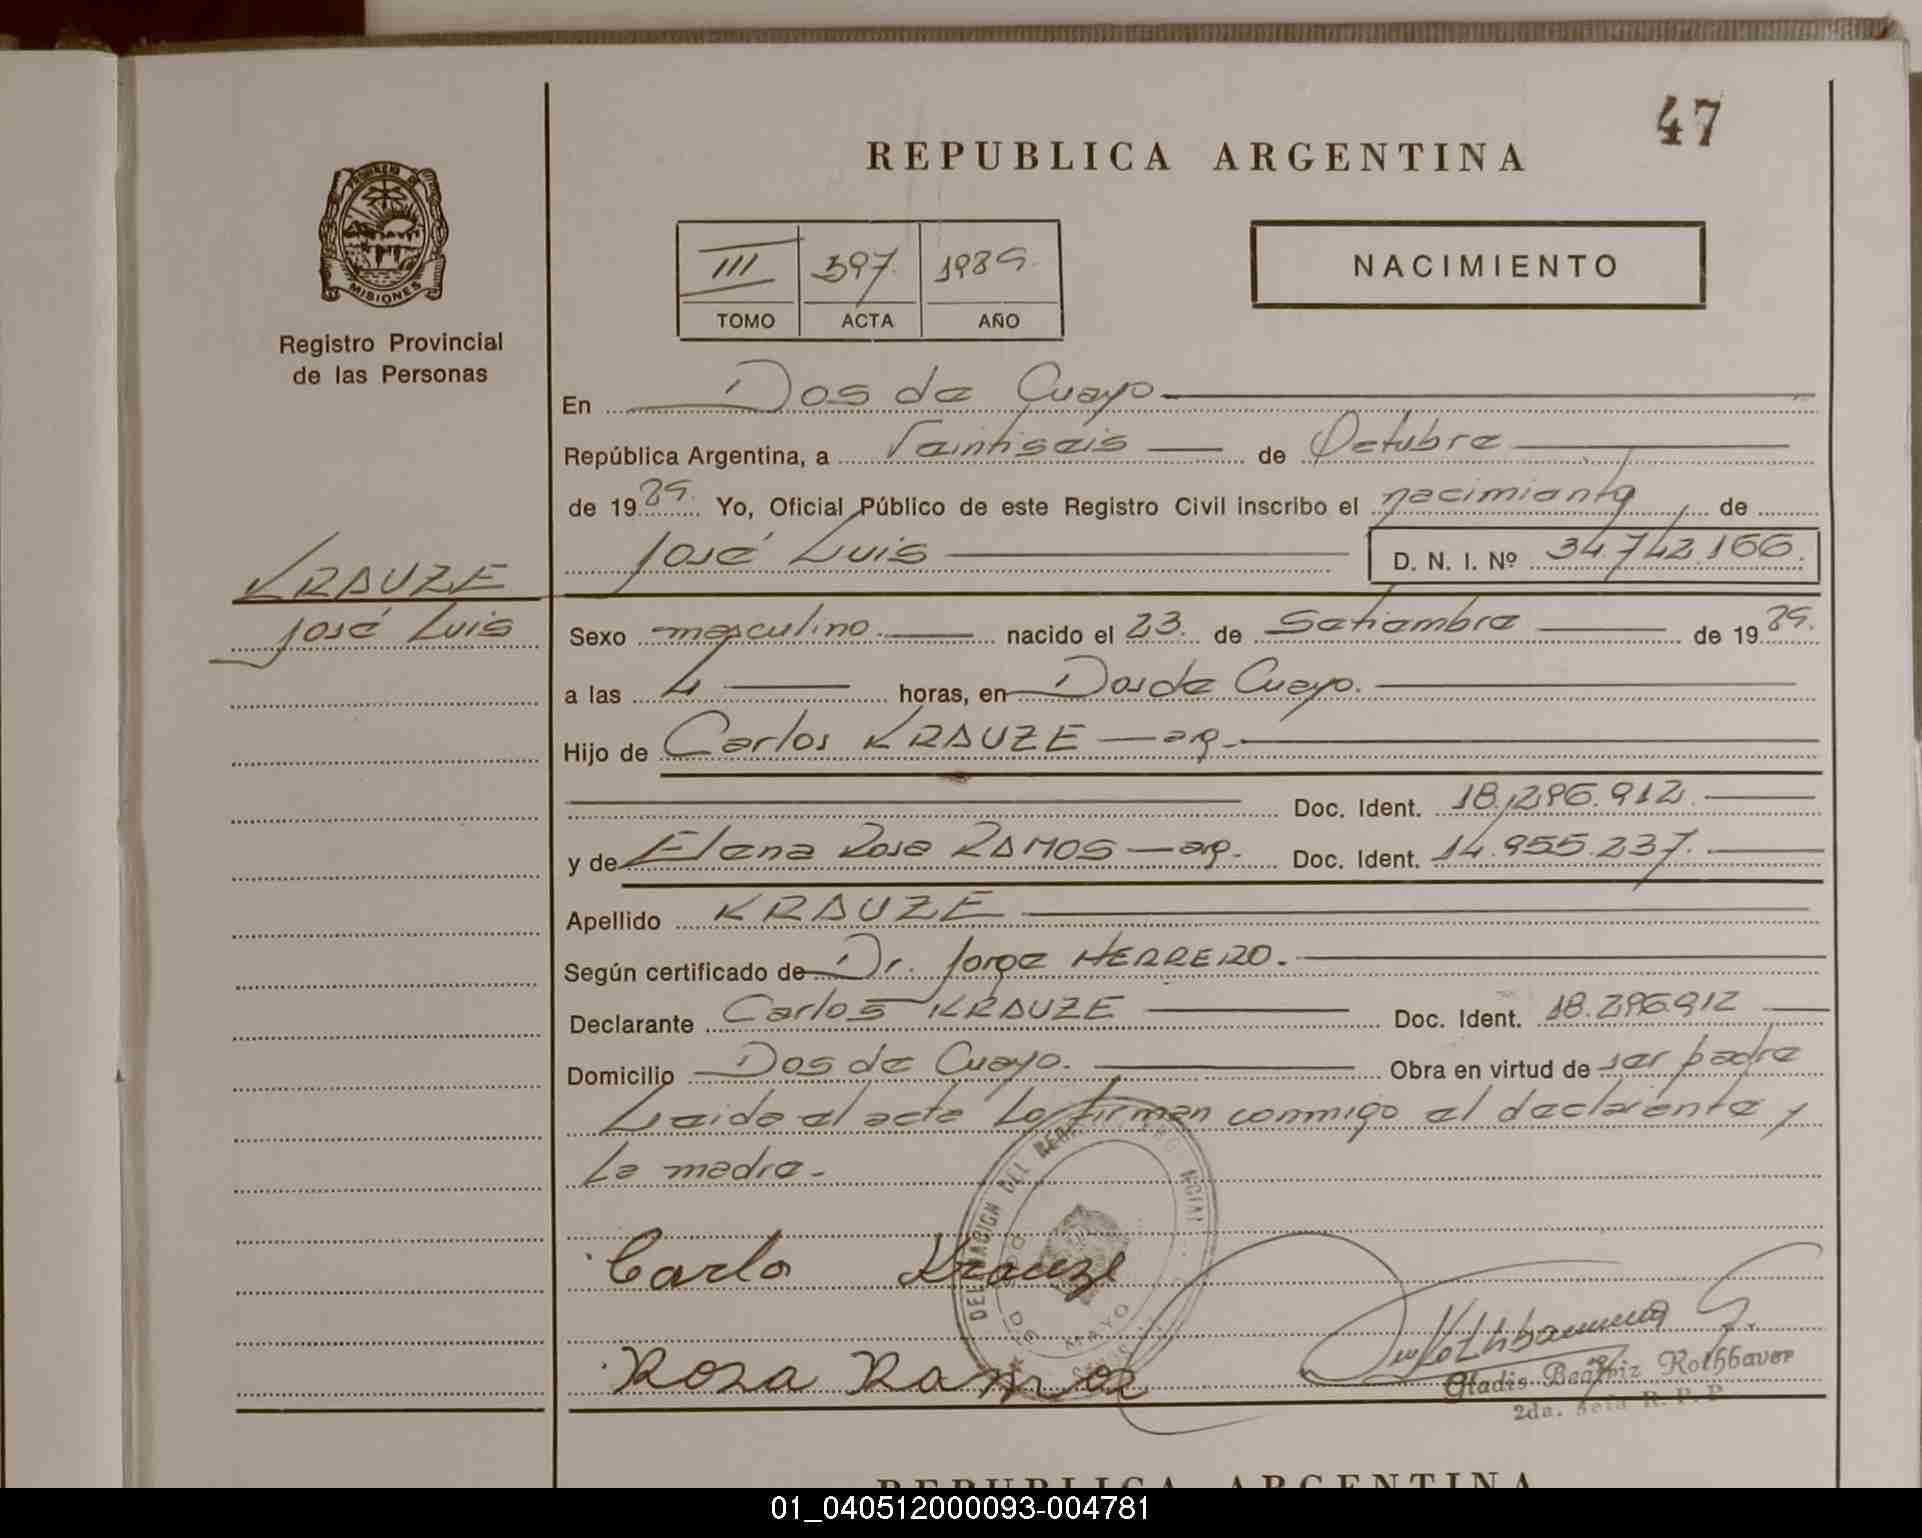 47
REPUBLICA ARGENTINA
PROVINCIA DE
MISIONES
Registro Provincial
de las Personas
III 597 1989
TOMO ACTA AÑO
NACIMIENTO
En Dos de Mayo
República Argentina, a Veintiseis de Octubre
de 1989. Yo, Oficial Público de este Registro Civil inscribo el nacimiento de
José Luis D. N. I. Nº 34.742.166.
KRAUZE
José Luis
Sexo masculino. nacido el 23. de Setiembre de 1989.
a las 4 horas, en Dos de Mayo.
Hijo de Carlos KRAUZE — arg.
Doc. Ident. 18.296.912.
y de Elena Rosa RAMOS — arg. Doc. Ident. 14.955.237.
Apellido KRAUZE
Según certificado de Dr. Jorge HERRERO.
Declarante Carlos KRAUZE Doc. Ident. 18.296.912
Domicilio Dos de Mayo. Obra en virtud de ser padre
Leida el acta la firman conmigo el declarante y
la madre.
Carlo Krauze
Rosa Ramos
Gladis Beatriz Rothbauer
2da. R. P. P.
REPUBLICA ARGENTINA
01_040512000093-004781